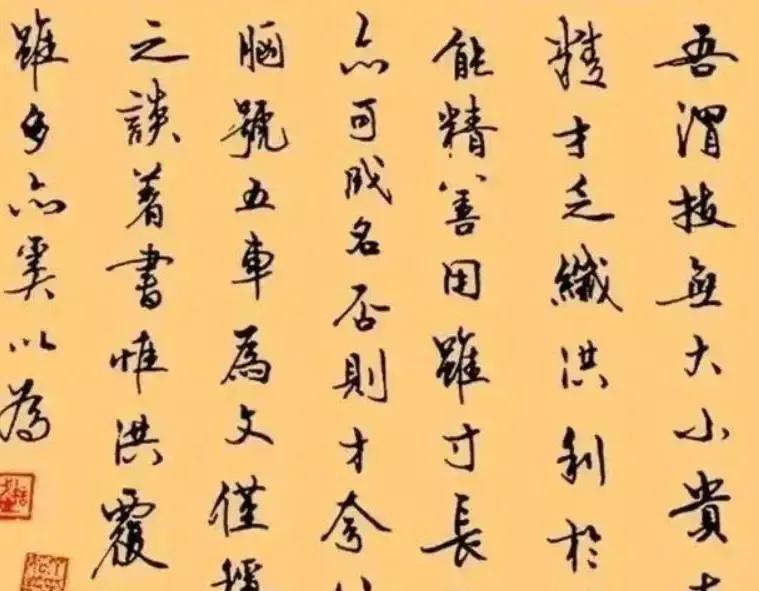 吾謂技無大小貴
精才乏纖洪利於
能精善用雖寸長
亦可成名否則才夸
胸號五車為文僅
之談著書惟洪覆
雖多亦奚以為